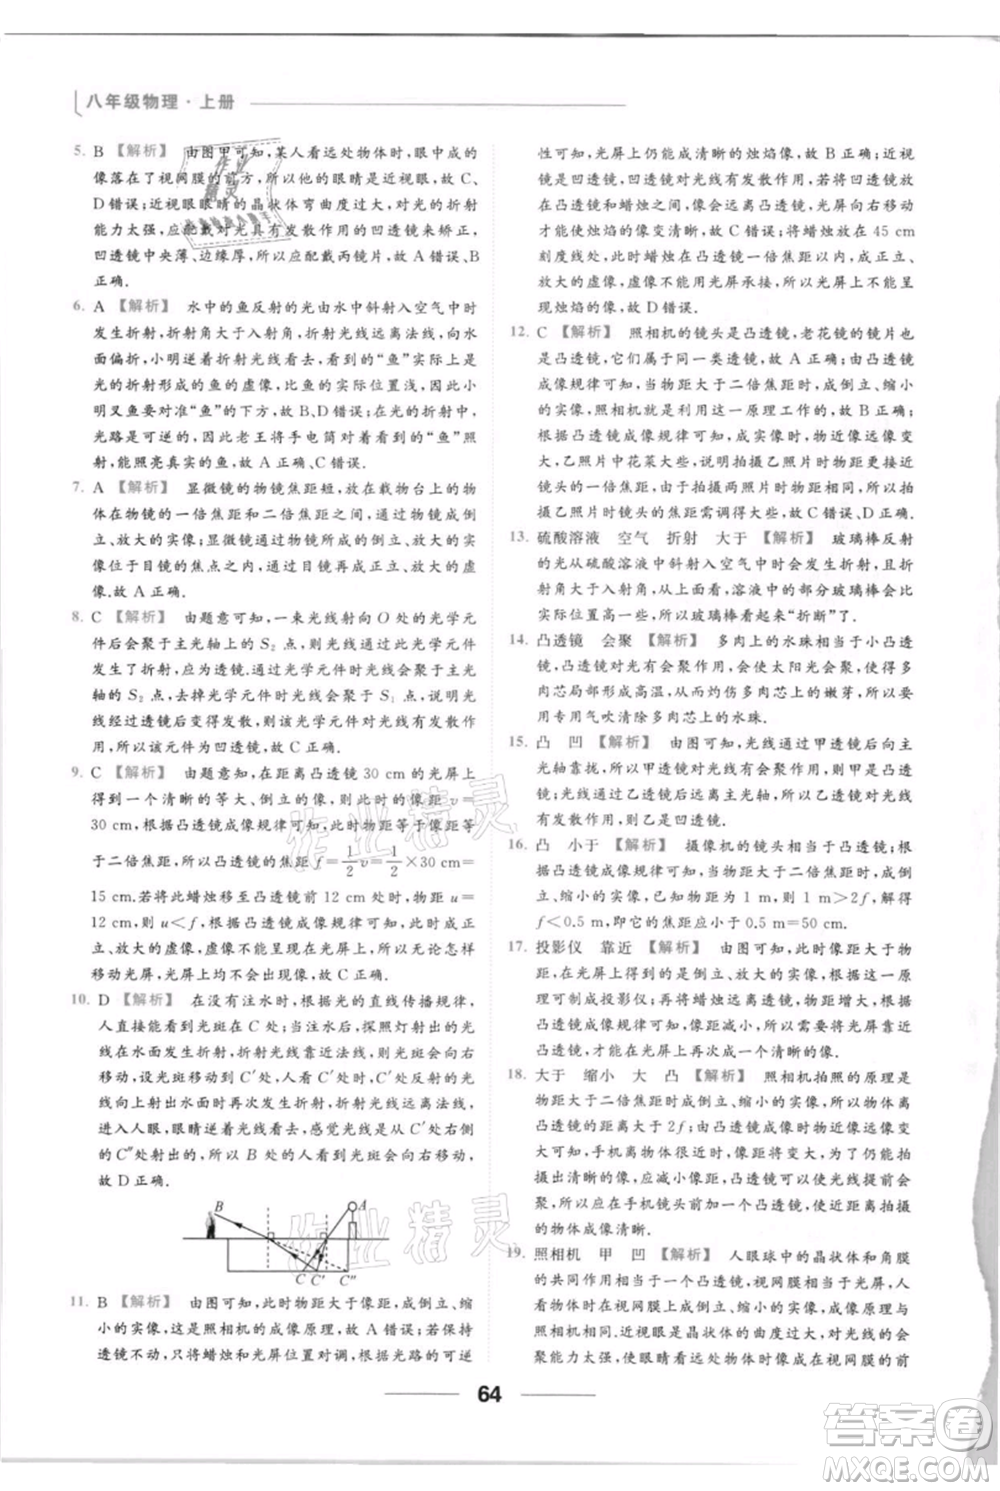 八年级物理·上册
5. B 【解析】 由图甲可知,某人看远处物体时,眼中成的
像落在了视网膜的前方,所以他的眼睛是近视眼,故C、
D错误;近视眼眼睛的晶状体弯曲度过大,对光的折射
能力太强,应配戴对光具有发散作用的凹透镜来矫正,
凹透镜中央薄、边缘厚,所以应配戴丙透镜,故A错误、B
正确.
6. A 【解析】 水中的鱼反射的光由水中斜射入空气中时
发生折射,折射角大于入射角,折射光线远离法线,向水
面偏折,小明逆着折射光线看去,看到的“鱼”实际上是
光的折射形成的鱼的虚像,比实际位置要浅一些,因此小
明叉鱼要对准“鱼”的下方,故B、D错误;在光的折射中,
光路是可逆的,因此老王将手电筒对着看到的“鱼”照
射,能照亮真实的鱼,故A正确、C错误.
7. A 【解析】 显微镜的物镜焦距短,放在载物台上的物
体在物镜的一倍焦距和二倍焦距之间,通过物镜成倒
立、放大的实像;显微镜通过物镜成的像,在目镜的一倍
焦距以内,即在目镜的焦点以内,通过目镜成正立、放大
的虚像,故A正确.
8. C 【解析】 由题意可知,一束光线射向O处的光学元
件后会聚于主光轴上的S₂点,则光线经过此光学元件
时发生了折射,应为透镜.放光学元件时光线会聚于主光
轴的S₂点,去掉光学元件时光线会聚于S₁点,说明光
线经过透镜后变得发散了,该光学元件对光线有发散作
用,所以该元件为凹透镜,故C正确.
9. C 【解析】 由题意知,在距离凸透镜30 cm的光屏上
得到一个清晰的、等大、倒立的像,则此时的像距v=
30 cm,根据凸透镜成像规律可知,此时物距等于像距等
于二倍焦距,所以凸透镜的焦距f=1/2v=1/2×30 cm=
15 cm.若将此蜡烛移至凸透镜前12 cm处时,物距u=
12 cm,则u<f,根据凸透镜成像规律可知,此时成正
立、放大的虚像,虚像不能呈现在光屏上,所以无论怎样
移动光屏,光屏上始终得不到像,故C正确.
10. D 【解析】 在没有注水时,根据光的直线传播规律,
人直接可以看到光斑在C处;当注水后,探照灯射出的
光在水面发生折射,折射光线靠近法线,因此光斑会向
右移动,即光斑移到了C′处,人看到C′处反射的光
线向人眼射出水面时再次发生折射,折射光线远离法线,
进入人眼,眼睛逆着光线看去,感觉光线是从C′处右侧
的C″处射出的,所以感觉光斑在C′处右侧的C″处,
故D正确.
B A
C C′ C″
11. B 【解析】 由图可知,此时物距大于像距,成倒立、缩
小的实像,这是照相机的成像原理,故A错误;若保持
透镜不动,只将蜡烛和光屏位置对调,根据光路的可逆
性可知,光屏上仍能成清晰的烛焰像,故B正确;近视
眼镜是凹透镜,凹透镜对光线有发散作用,在凸透镜
和蜡烛之间放上近视眼镜,会使像远离凸透镜,向右移
动才能使烛焰的像变清晰,故C错误;将蜡烛放在45 cm
刻度线处,此时物距小于凸透镜的一倍焦距,成正立、
放大的虚像,虚像不能用光屏承接,所以光屏上不能呈
现烛焰的像,故D错误.
12. C 【解析】 照相机的镜头是凸透镜,老花镜的镜片也
是凸透镜,所以它们的镜片类型一致,故A正确;由凸透
镜成像规律可知,当物距大于二倍焦距时,成倒立、缩小
的实像,照相机利用这一原理工作的,故B正确;
根据凸透镜成像规律可知,成实像时,物近像远像变
大,乙照片中花菜大些,说明拍摄乙照片时物距小一
些,故C错误;由于拍摄两照片时物距不同,所以
拍摄乙照片时镜头的焦距需调得大些,故D正确.
13. 硫酸溶液 空气 折射 大于 【解析】 玻璃棒反射
的光从硫酸溶液中斜射入空气中时会发生折射,且折
射角大于入射角,人逆着折射光线看去,溶液中看到的
是比实际位置高的虚像,所以玻璃棒看起来“折断”了.
14. 凸透镜 会聚 【解析】 多肉上的水珠相当于小凸透
镜,凸透镜对光线有会聚作用,会使太阳光会聚,从而使多
肉芯局部形成高温,从而灼伤多肉芯的嫩芽,所以要
用专用气吹清除多肉芯上的水珠.
15. 凸 凹 【解析】 由图可知,光线通过甲透镜后向主
光轴靠拢,所以甲透镜对光线有会聚作用,为凸透镜;
光线通过乙透镜后远离主光轴,所以乙透镜对光线有
发散作用,为凹透镜.
16. 凸 小于 【解析】 摄像机的镜头相当于凸透镜,成
倒立、缩小的实像,已知物距为1 m,则1 m>2f,解得
f<0.5 m,即它的焦距应小于0.5 m=50 cm.
17. 投影仪 靠近 【解析】 由图可知,此时像距大于物
距,根据凸透镜成像规律可知,成倒立、放大的实像,根据这一原
理可制成投影仪;再将蜡烛远离透镜,物距增大,根据
凸透镜成像规律可知,像距减小,所以需要将光屏靠近
凸透镜,才能在光屏上再次成一个清晰的像.
18. 大于 缩小 大 凸 【解析】 照相机拍照的原理是
物距大于二倍焦距时成倒立、缩小的实像,所以物体离
凸透镜的距离要大于2f;根据凸透镜成像时,物近像远像变
大可知,手机离物体很近时,像会变大.由于此时物距
太小,像成在光屏的后方,为了使光线提前会聚,以便
拍摄出清晰的像,应减小像距,可以使光线提前会
聚,所以应在手机镜头前加一个凸透镜,这样会使远处
的物体成像清晰.
19. 照相机 甲 凹 【解析】 人眼球中的晶状体和角膜
的共同作用相当于凸透镜,视网膜相当于光屏,人看物
体时在视网膜上成倒立、缩小的实像,与照相机成像原
理相同.近视眼是晶状体的曲度过大,对光线的会
聚能力太强,使眼睛看远处物体时成像在视网膜的前
64
作业精灵
作业精灵
答案圈
MXQE.COM